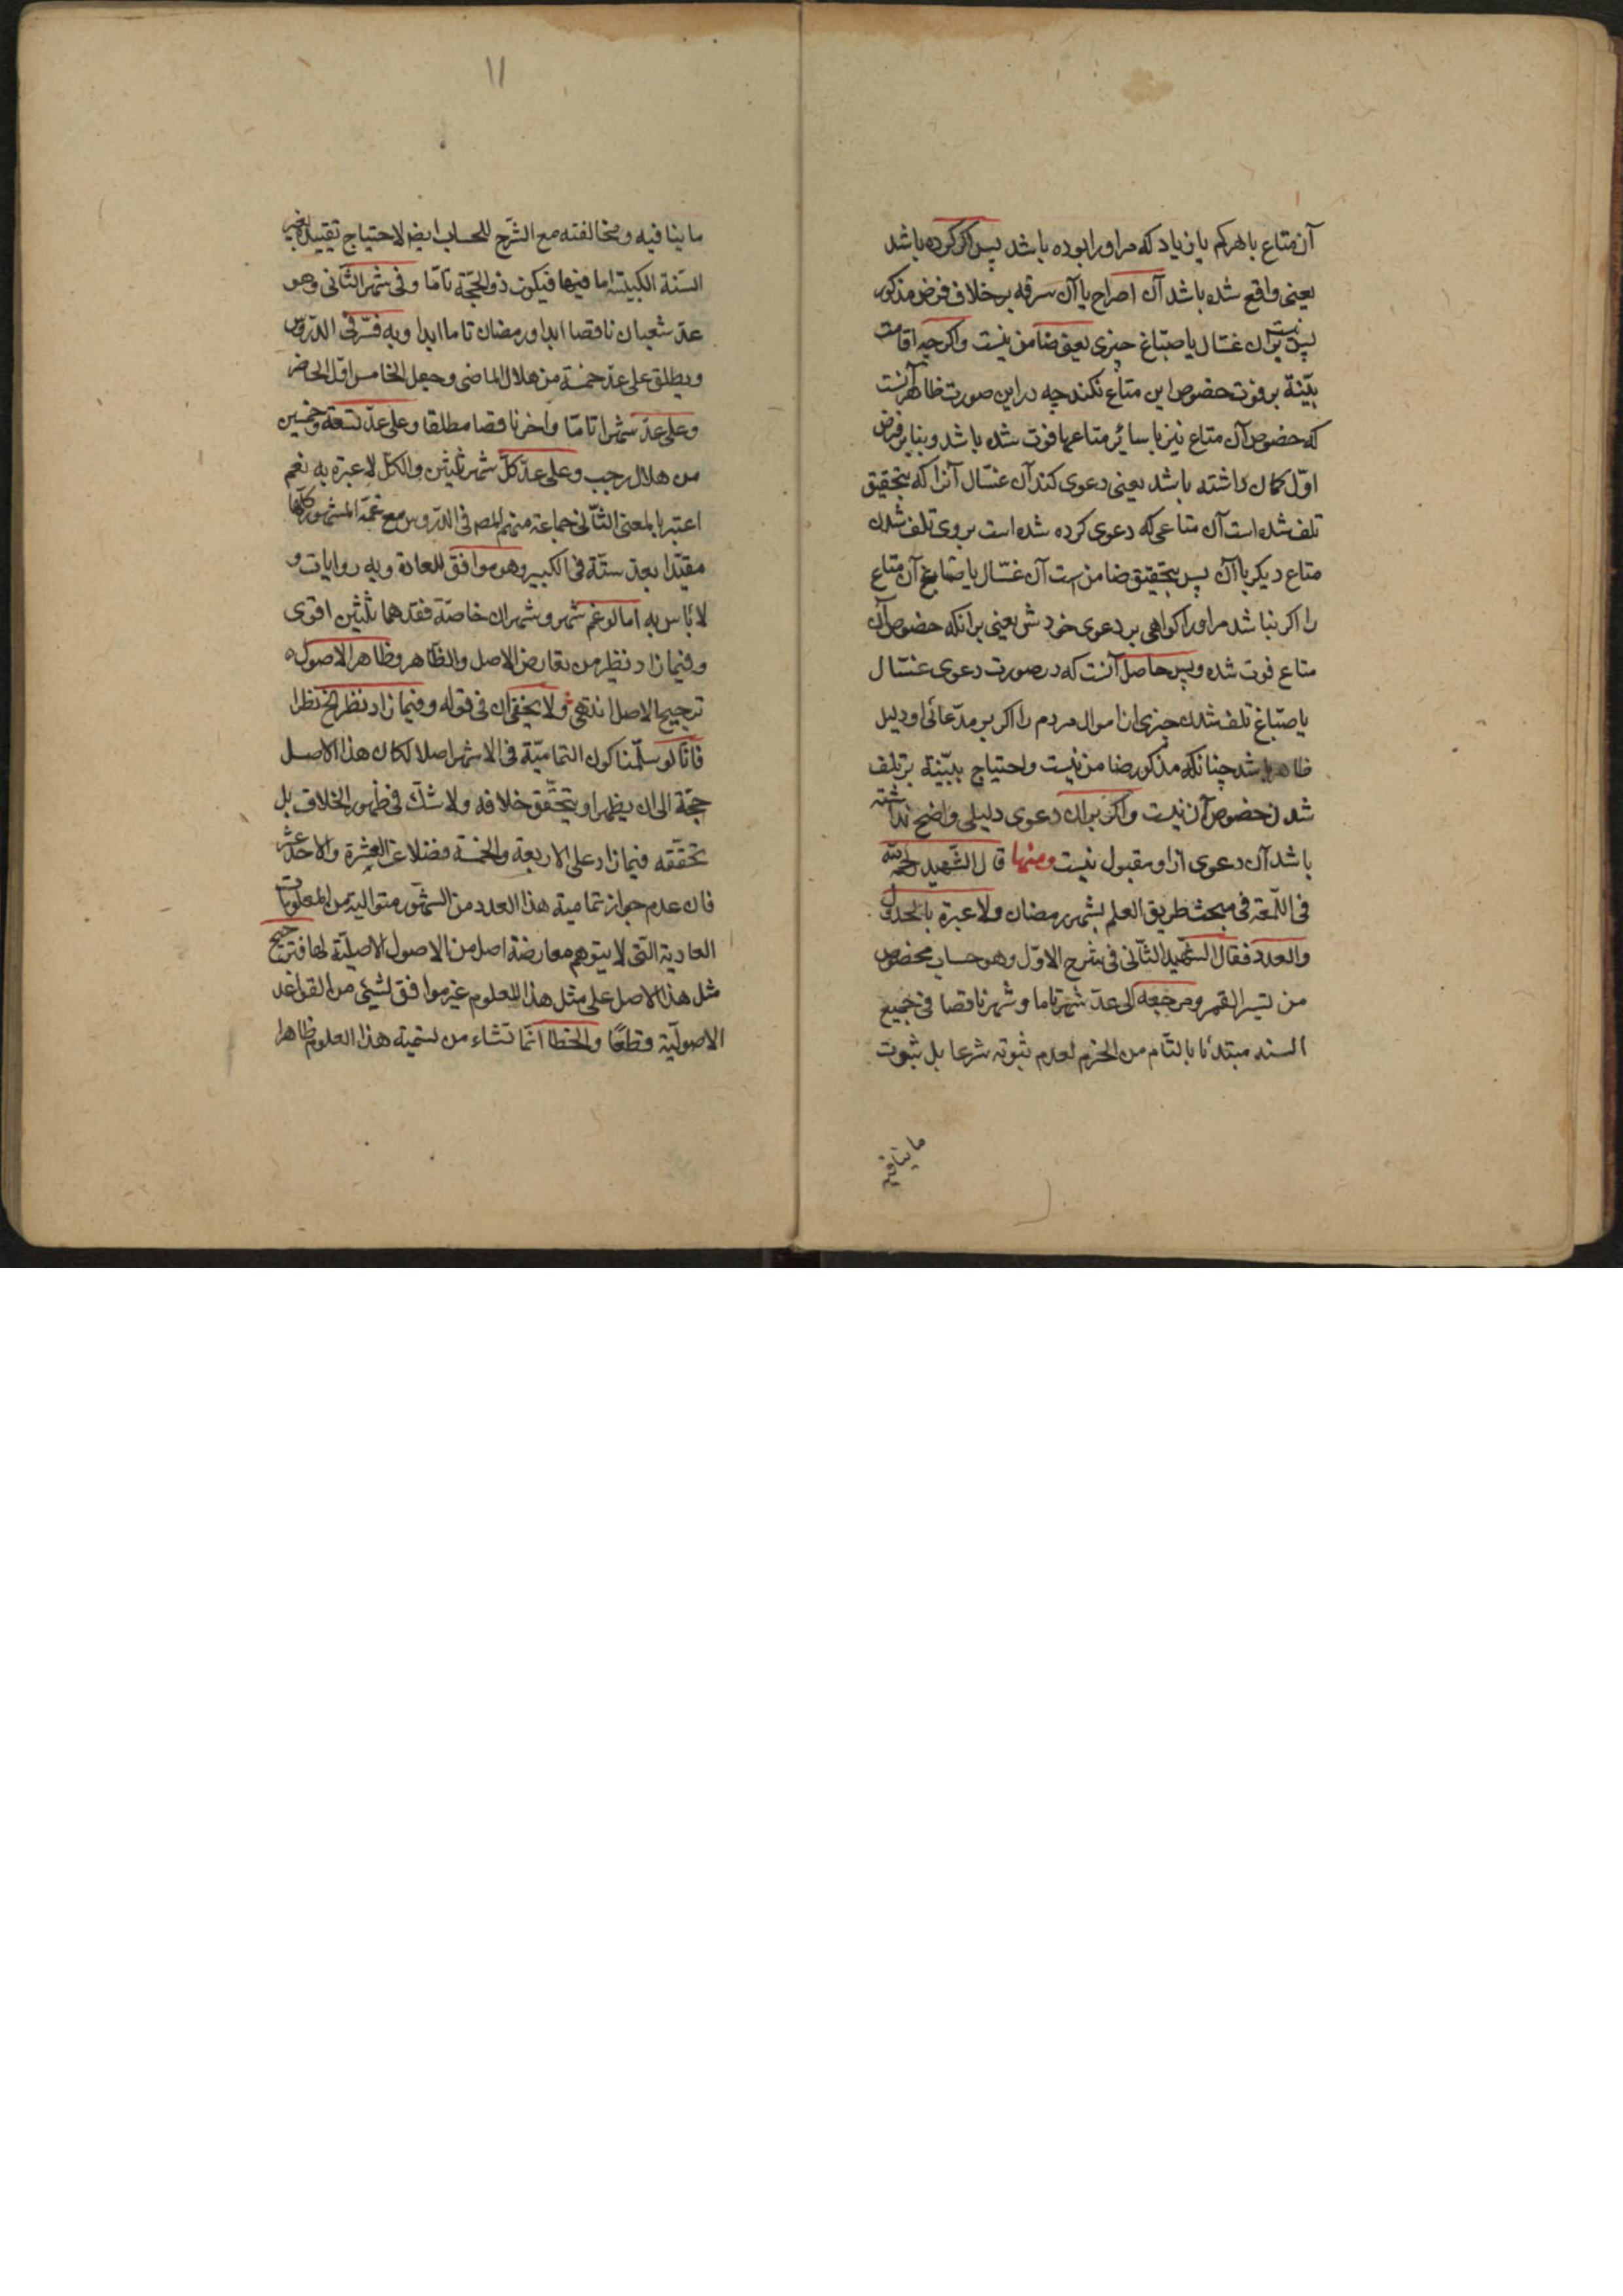 آن متاع با هر کم یا زیاد که مر او را بوده باشد پس اگر کرده باشد
یعنی واقع شده باشد آن اصراح یا آن سرقه بر خلاف فرض مذکور
پس نیست بر آن غسّال یا صبّاغ چیزی یعنی ضامن نیست و اگرچه اقامت
بیّنة بر فوت خصوص این متاع نکند چه در این صورت ظاهر آنست
که خصوص آن متاع نیز با سائر متاعها فوت شده باشد و بنا بر فرض
اوّل کمان داشته باشد یعنی دعوی کند آن غسّال آنرا که بتحقیق
تلف شده است آن متاعی که دعوی کرده شده است بر وی تلف شدن
متاع دیکر با آن پس بتحقیق ضامن است آن غسّال یا صبّاغ آن متاع
را اکر نباشد مر او را کواهی بر دعوی خودش یعنی بر انکه خصوص آن
متاع فوت شده و پس حاصل آنست که در صورت دعوی غسّال
یا صبّاغ تلف شدن چیزی از اموال مردم را اکر بر مدّعائی او دلیل
ظاهر باشد چنانکه مذکور ضامن نیست و احتیاج ببیّنة بر تلف
شدن خصوص آن نیست و اکر بر ان دعوی دلیلی واضح نداشته
باشد آن دعوی از او مقبول نیست ومنها قال الشّهید رحمه الله
فی اللّمعة فی مبحث طریق العلم بشهر رمضان ولا عبرة بالجدول
والعدد فقال الشّهید الثّانی فی شرح الاوّل وهو حساب مخصوص
من تسیر القمر ومرجعه الی عدّ شهر تاما وشهر ناقصا فی جمیع
السنة مبتدئا بالتّام من المحرم لعدم ثبوته شرعا بل ثبوت
ما ینافیه
١١
ما ینافیه ومخالفته مع الشّرح للحساب ایض لاحتیاج تقییده بغیر
السّنة الکبیسة اما فیها فیکون ذو الحجّة تامّا وفی شهر الثّانی وهو
عدّ شعبان ناقصا ابدا ورمضان تاما ابدا وبه فسّر فی الدّروس
ویطلق علی عدّ خمسة من هلال الماضی وجعل الخامس اوّل الحاضر
وعلی عدّ شهرا تامّا واخر ناقصا مطلقا وعلی عدّ تسعة وخمسین
من هلال رجب وعلی عدّ کلّ شهر ثلثین والکلّ لا عبرة به نعم
اعتبر بالمعنی الثّانی جماعة منهم المص فی الدّروس مع غمّة الشهور کلّها
مقیّدا بعد ستّة فی الکبیر وهو موافق للعادة وبه روایات و
لا بأس به اما لو غم شهر وشهران خاصّة فقدّهما ثلثین اقوی
وفیما زاد نظر من تعارض الاصل والظّاهر وظاهر الاصول
ترجیح الاصل انتهی ولا یخفی ان فی قوله وفیما زاد نظر الخ نظرا
فانّا لو سلّمنا کون التمامیّة فی الاشهر اصلا لکان هذا الاصل
حجّة الی ان یظهر او یتحقّق خلافه ولا شکّ فی ظهور الخلاف بل
تحقّقه فیما زاد علی الاربعة والخمسة فضلا عن العشرة والاحد عشر
فان عدم جواز تمامیة هذا العدد من الشهور متوالیة من المعلومات
العادیة الّتی لا یتوهم معارضة اصل من الاصول الاصلیّة لها فترجیح
مثل هذا الاصل علی مثل هذا المعلوم غیر موافق لشیئی من القواعد
الاصولیّة قطعًا والخطا انّما نشاء من تسمیة هذا المعلوم ظاهرا